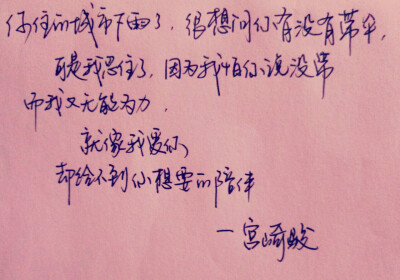 你住的城市下雨了，很想问你有没有带伞，
可是我忍住了，因为我怕你说没带
而我又无能为力，
就像我爱你，
却给不到你想要的陪伴
—宫崎骏